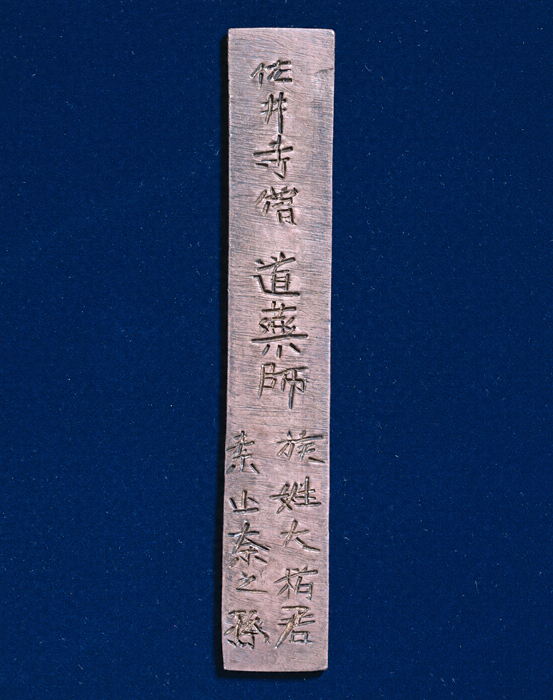 佐井寺僧 道藥師
族姓大楢君
素止奈之孫